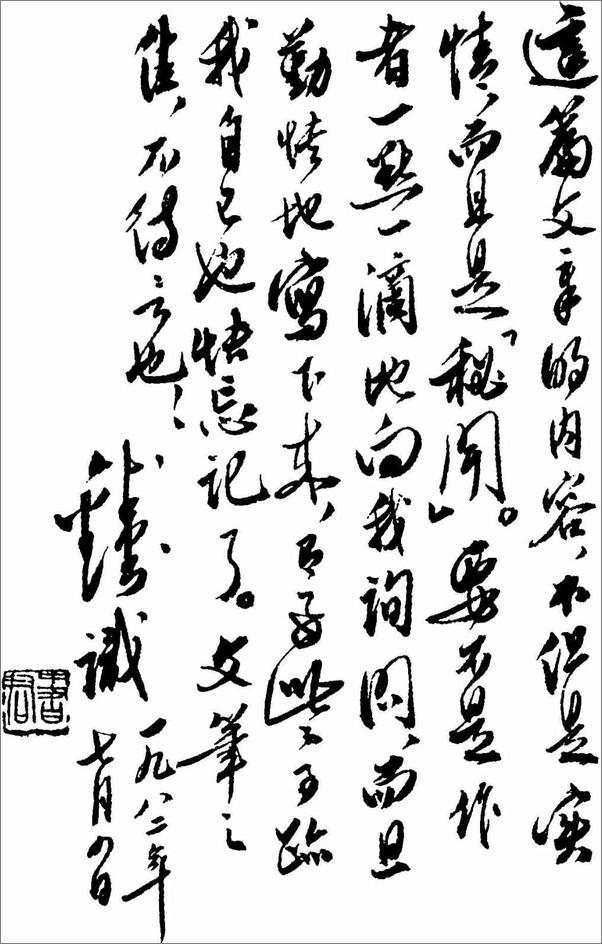 這篇文章的内容，不但是實
情，而且是「秘聞」。要不是作
者一點一滴地向我詢問，而且
勤快地寫下來，有好些事跡
我自己也快忘記了。文筆之
佳，不待言也！
錢鍾書識
一九八二年
七月四日